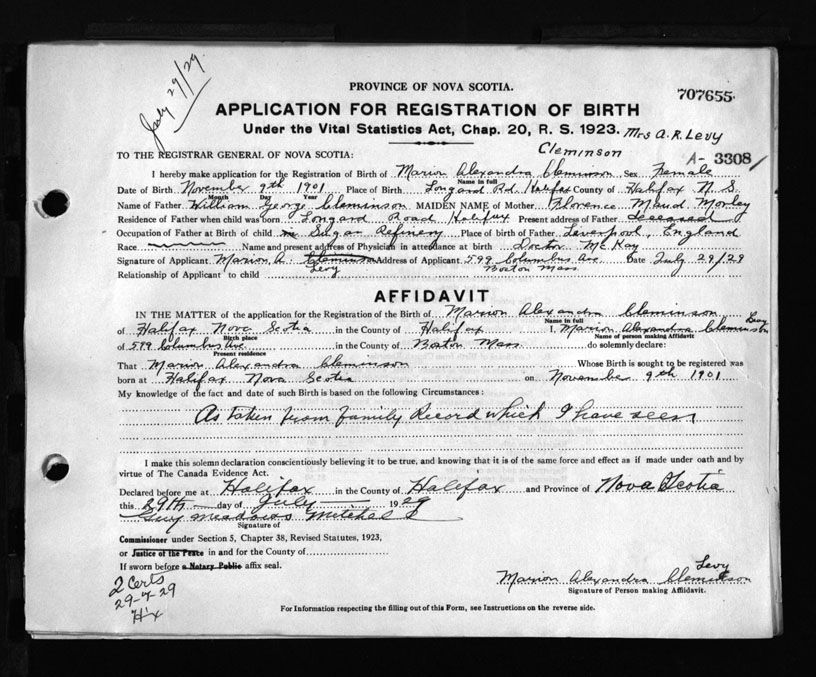 July 29/29.
PROVINCE OF NOVA SCOTIA.
707655
APPLICATION FOR REGISTRATION OF BIRTH
Under the Vital Statistics Act, Chap. 20, R. S. 1923. Mrs A. R. Levy
Cleminson
TO THE REGISTRAR GENERAL OF NOVA SCOTIA:
A- 3308
I hereby make application for the Registration of Birth of Marion Alexandra Cleminson Sex Female
Name in full
Date of Birth November 9th 1901 Place of Birth Longard Rd. Halifax County of Halifax N S
Month Day Year
Name of Father William George Cleminson MAIDEN NAME of Mother Florence Maud Morley
Residence of Father when child was born Longard Road Halifax Present address of Father Deceased
Occupation of Father at Birth of child in Sugar Refinery Place of birth of Father Liverpool, England
Race Name and present address of Physician in attendance at birth Doctor McKay
Signature of Applicant Marion A. Cleminson Address of Applicant 599 Columbus Ave. Date July 29/29
Levy Boston Mass
Relationship of Applicant to child
AFFIDAVIT
IN THE MATTER of the application for the Registration of the Birth of Marion Alexandra Cleminson
Name in full
Levy
of Halifax Nova Scotia in the County of Halifax I, Marion Alexandra Cleminson
Birth place Name of person making Affidavit
of 599 Columbus Ave. in the County of Boston Mass. do solemnly declare:
Present residence
That Marion Alexandra Cleminson Whose Birth is sought to be registered was
born at Halifax Nova Scotia on November 9th 1901
My knowledge of the fact and date of such Birth is based on the following Circumstances:
As taken from family Record which I have seen
I make this solemn declaration conscientiously believing it to be true, and knowing that it is of the same force and effect as if made under oath and by
virtue of The Canada Evidence Act.
Declared before me at Halifax in the County of Halifax and Province of Nova Scotia
this 29th day of July 1929
Guy Meadows Mitchel
Signature of
Commissioner under Section 5, Chapter 38, Revised Statutes, 1923,
or Justice of the Peace in and for the County of
If sworn before a Notary Public affix seal.
2 Certs
29-7-29
Hx
Levy
Marion Alexandra Cleminson
Signature of Person making Affidavit.
For Information respecting the filling out of this Form, see Instructions on the reverse side.